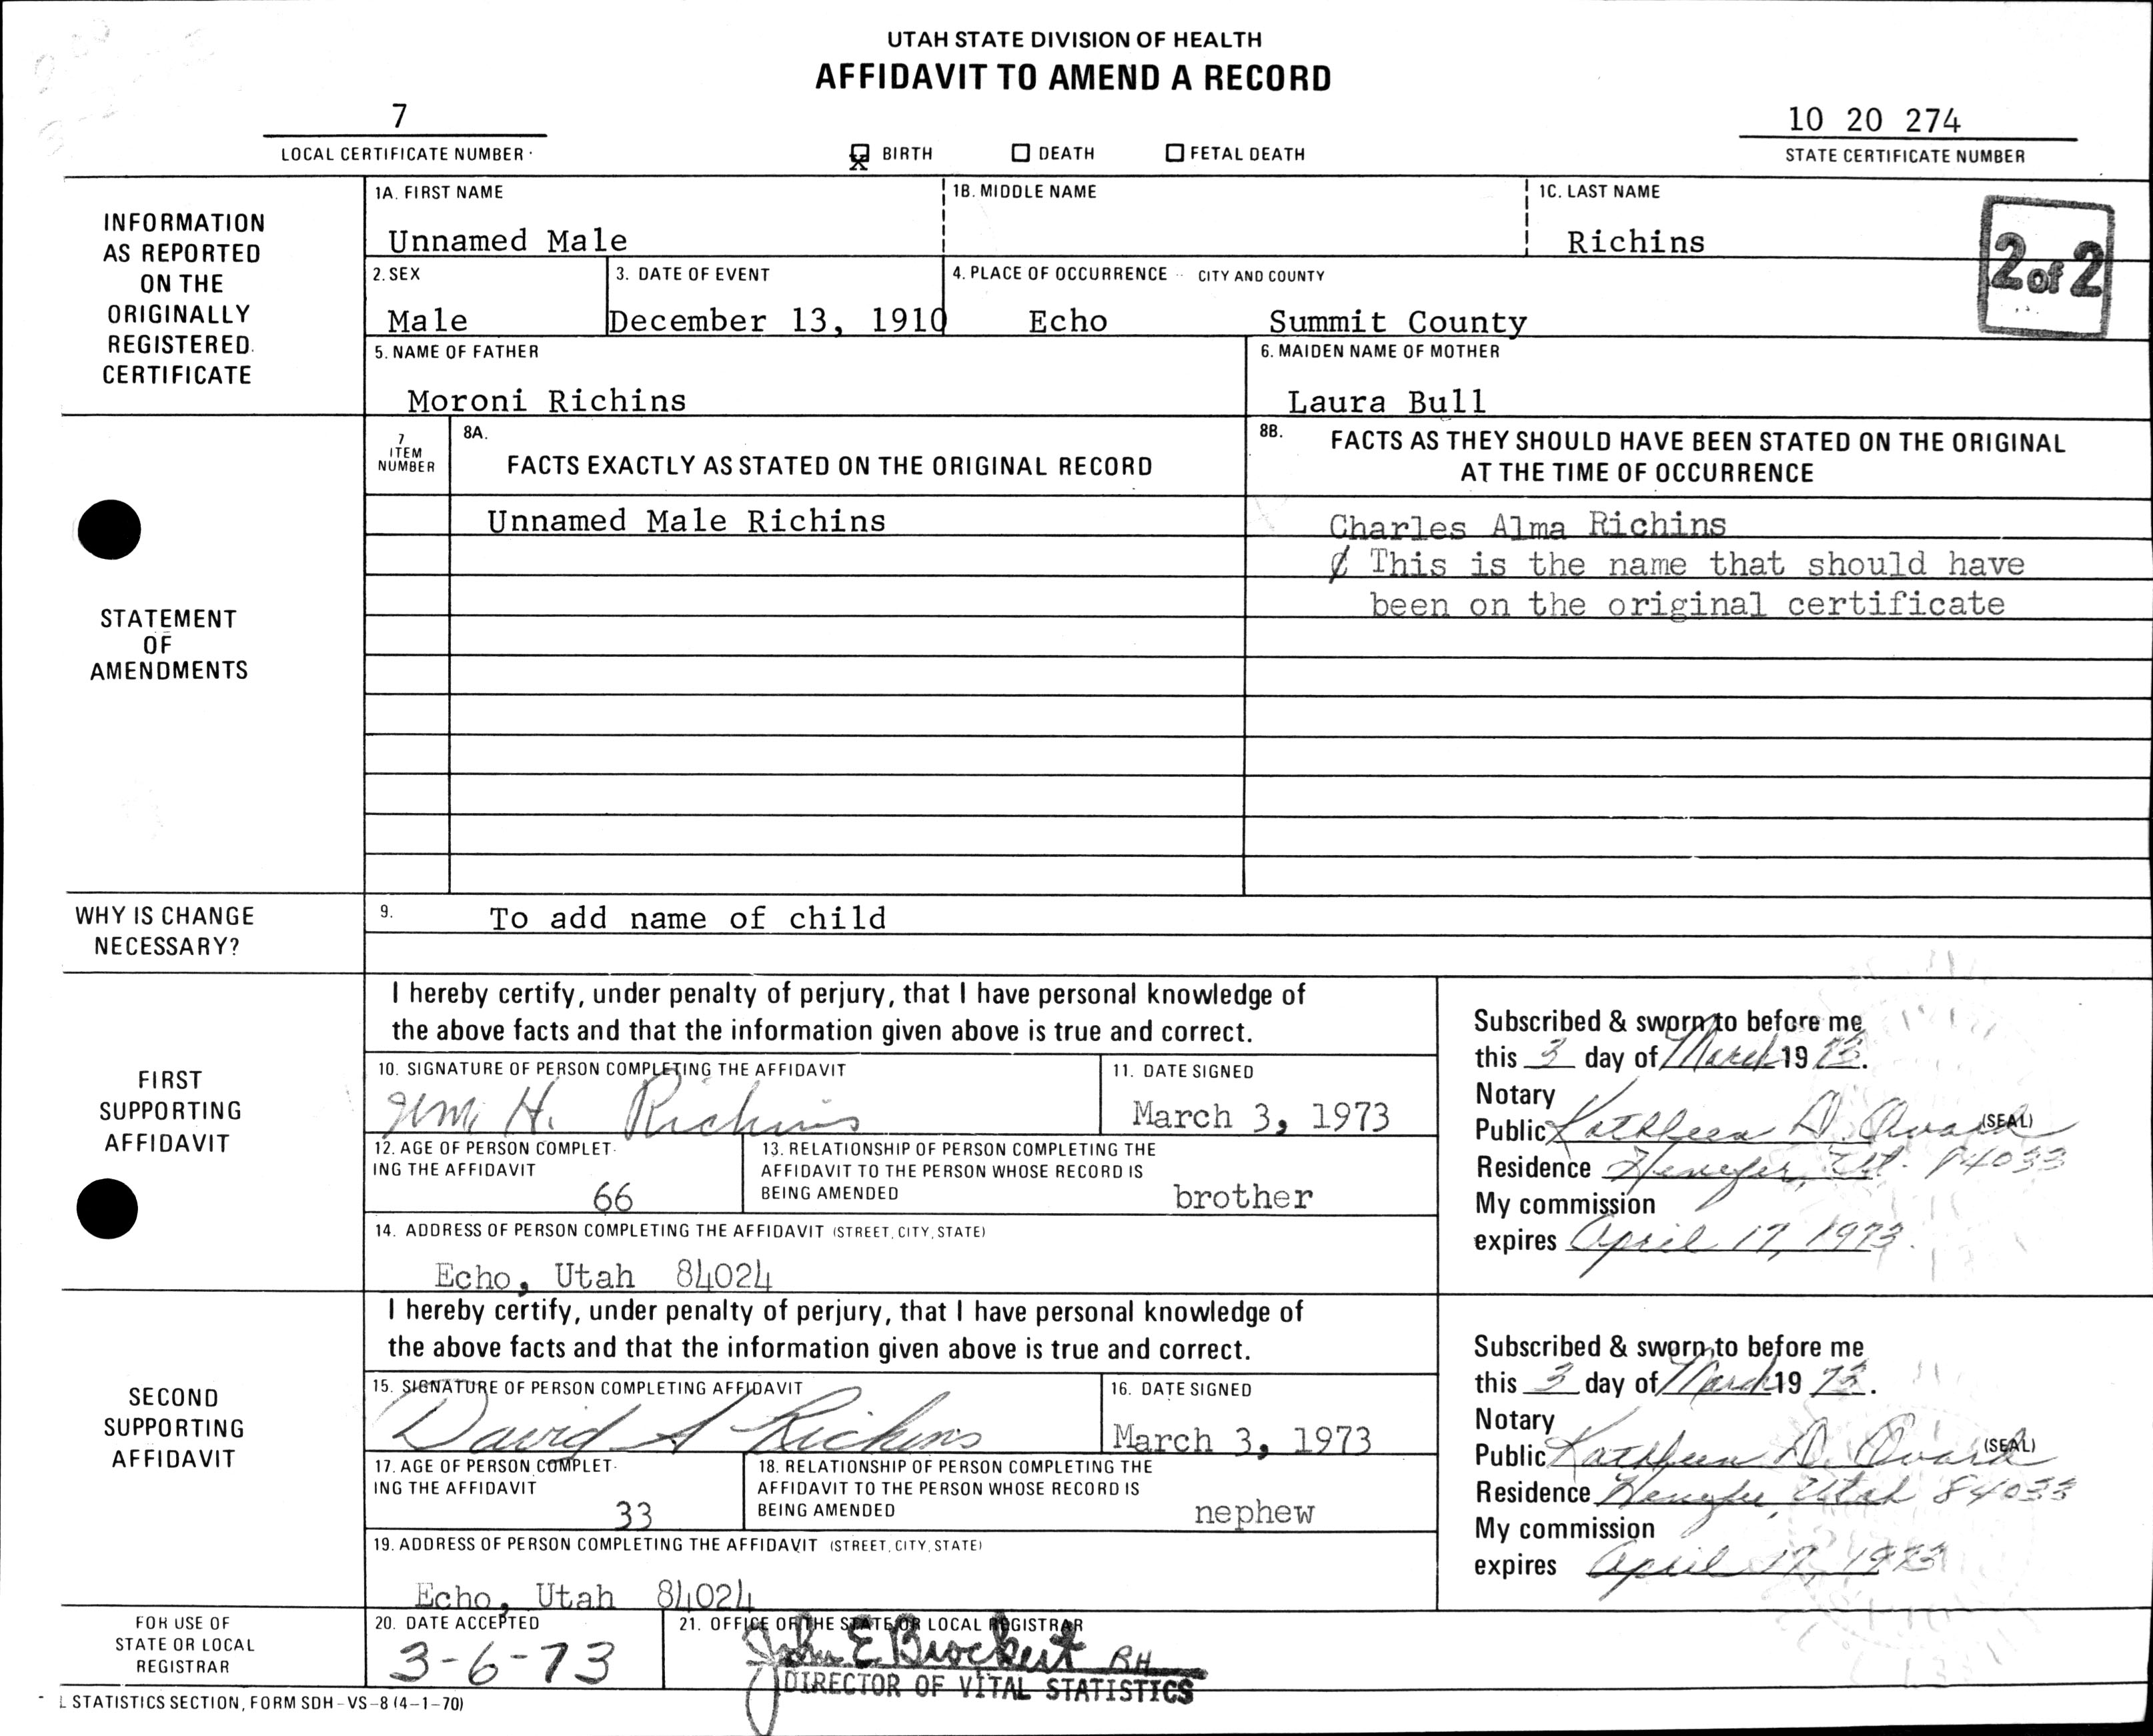 UTAH STATE DIVISION OF HEALTH
AFFIDAVIT TO AMEND A RECORD
7
LOCAL CERTIFICATE NUMBER
X BIRTH DEATH FETAL DEATH
10 20 274
STATE CERTIFICATE NUMBER
INFORMATION
AS REPORTED
ON THE
ORIGINALLY
REGISTERED
CERTIFICATE
1A. FIRST NAME
Unnamed Male
1B. MIDDLE NAME
1C. LAST NAME
Richins
2 of 2
2. SEX
Male
3. DATE OF EVENT
December 13, 1910
4. PLACE OF OCCURRENCE CITY AND COUNTY
Echo Summit County
5. NAME OF FATHER
Moroni Richins
6. MAIDEN NAME OF MOTHER
Laura Bull
STATEMENT
OF
AMENDMENTS
7
ITEM
NUMBER
8A.
FACTS EXACTLY AS STATED ON THE ORIGINAL RECORD
Unnamed Male Richins
8B.
FACTS AS THEY SHOULD HAVE BEEN STATED ON THE ORIGINAL
AT THE TIME OF OCCURRENCE
Charles Alma Richins
This is the name that should have
been on the original certificate
WHY IS CHANGE
NECESSARY?
9.
To add name of child
FIRST
SUPPORTING
AFFIDAVIT
I hereby certify, under penalty of perjury, that I have personal knowledge of
the above facts and that the information given above is true and correct.
10. SIGNATURE OF PERSON COMPLETING THE AFFIDAVIT
Wm H. Richins
11. DATE SIGNED
March 3, 1973
12. AGE OF PERSON COMPLET-
ING THE AFFIDAVIT
66
13. RELATIONSHIP OF PERSON COMPLETING THE
AFFIDAVIT TO THE PERSON WHOSE RECORD IS
BEING AMENDED
brother
14. ADDRESS OF PERSON COMPLETING THE AFFIDAVIT (STREET, CITY, STATE)
Echo, Utah 84024
Subscribed & sworn to before me
this 3 day of March 19 73.
Notary
Public Kathleen D. (SEAL)
Residence Henefer, Ut. 84033
My commission
expires April 17, 1973.
SECOND
SUPPORTING
AFFIDAVIT
I hereby certify, under penalty of perjury, that I have personal knowledge of
the above facts and that the information given above is true and correct.
15. SIGNATURE OF PERSON COMPLETING AFFIDAVIT
David A Richins
16. DATE SIGNED
March 3, 1973
17. AGE OF PERSON COMPLET-
ING THE AFFIDAVIT
33
18. RELATIONSHIP OF PERSON COMPLETING THE
AFFIDAVIT TO THE PERSON WHOSE RECORD IS
BEING AMENDED
nephew
19. ADDRESS OF PERSON COMPLETING THE AFFIDAVIT (STREET, CITY, STATE)
Echo, Utah 84024
Subscribed & sworn to before me
this 3 day of March 19 73.
Notary
Public Kathleen D. (SEAL)
Residence Henefer, Utah 84033
My commission
expires April 17, 1973
FOR USE OF
STATE OR LOCAL
REGISTRAR
20. DATE ACCEPTED
3-6-73
21. OFFICE OF THE STATE OR LOCAL REGISTRAR
John E Brockert RH
DIRECTOR OF VITAL STATISTICS
L STATISTICS SECTION, FORM SDH-VS-8 (4-1-70)